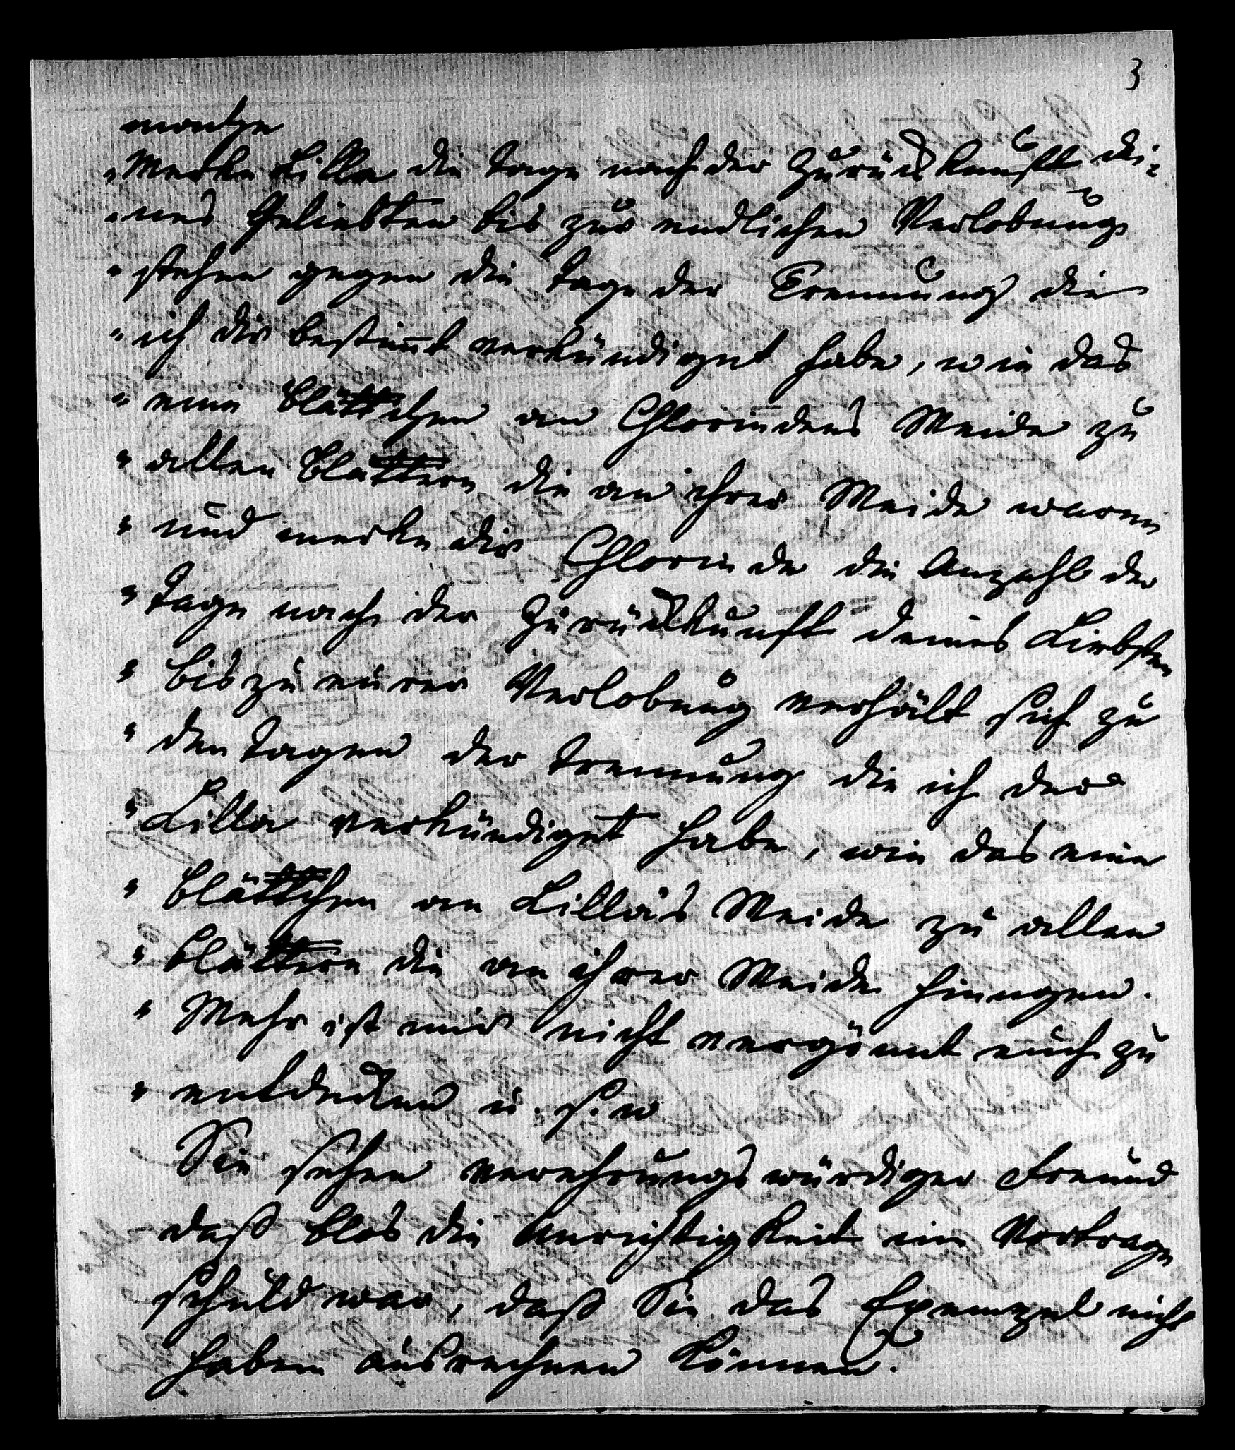 3
„Merke Lilla die Tage nach der Zurückkunft dei-
„nes Geliebten bis zur endlichen Verlobung
„stehen gegen die Tage der Trennung die
„ich dir bestimt verkündiget habe, wie das
„eine Blättchen an Chlorindens Weide zu
„allen Blättern die an ihrer Weide waren
„und merke dir Chlorinde die Anzahl der
„Tage nach der Zurückkunft deines Liebsten
„bis zu eurer Verlobung verhält sich zu
„den Tagen der Trennung die ich der
„Lilla verkündiget habe, wie das eine
„Blättchen an Lilla's Weide zu allen
„Blättern die an ihrer Weide hingen.
„Mehr ist mir nicht vergönnt euch zu
„entdecken u. s. w
Sie sehen verehrungswürdiger Freund
daß blos die Unrichtigkeit im Vortrage
schuld war, daß Sie das Exempel nicht
haben ausrechnen können.